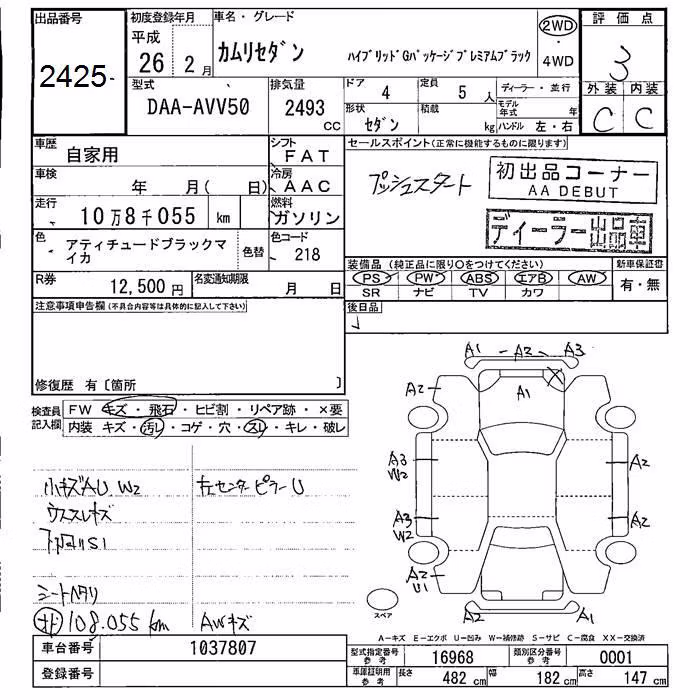 出品番号
2425-
初度登録年月
平成
26 2月
車名・グレード
カムリセダン
ハイブリッドGパッケージプレミアムブラック
2WD
・
4WD
評価点
3
外装 内装
C C
型式
DAA-AVV50
排気量
2493
CC
ドア 4
定員 5 人
形状
セダン
積載
kg
ディーラー・並行
モデル
年式 年
ハンドル 左・右
車歴
自家用
シフト
FAT
車検
年 月( 日)
冷房
AAC
走行
10万8千055 km
燃料
ガソリン
色
アティチュードブラックマ
イカ
色替
色コード
218
R券
12,500円
名変通知期限
月 日
セールスポイント(正常に機能するものに限ります)
プッシュスタート
初出品コーナー
AA DEBUT
ディーラー出品車
装備品(純正品に限り○をつけてください)
新車保証書
PS PW ABS エアB AW
SR ナビ TV カワ
有・無
後日品
注意事項申告欄(不具合内容等は具体的に記入して下さい)
修復歴 有〔箇所 〕
検査員
記入欄
FW キズ・飛石・ヒビ割・リペア跡・×要
内装 キズ・汚レ・コゲ・穴・スレ・キレ・破レ
小キズAU W2
左センターピラーU
ウススレキズ
下回りS1
シートヘタリ
108.055 km
AWキズ
A1 A2 A3
A2
A1
A3
W2
A2
A3
W2
A2
A2
U1
A2 A1
スペア
A-キズ E-エクボ U-凹み W-補修跡 S-サビ C-腐食 XX-交換済
車台番号
1037807
登録番号
型式指定番号
参考
16968
類別区分番号
参考
0001
車庫証明用
参考
長さ
482 cm
幅
182 cm
高さ
147 cm